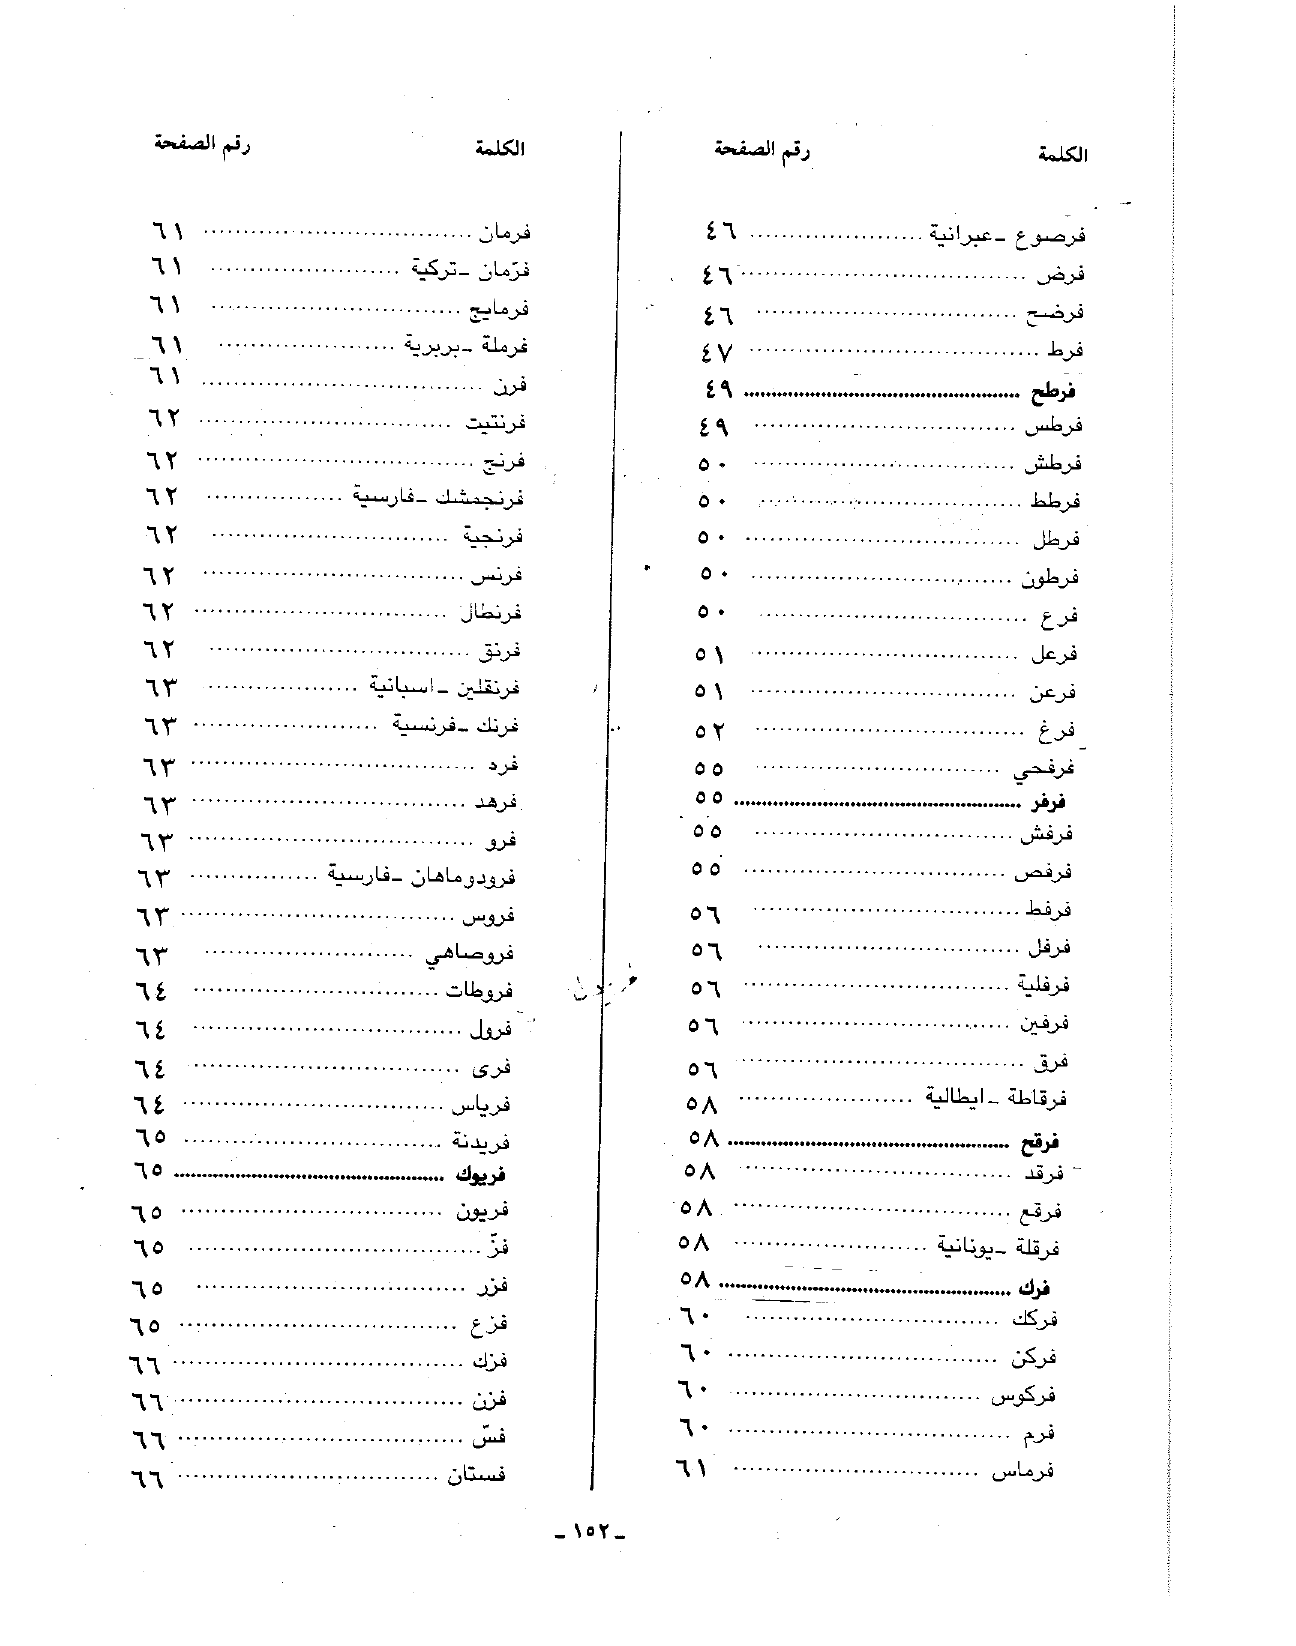 الكلمة رقم الصفحة
فرصوع ـ عبرانية ٤٦
فرض ٤٦
فرضح ٤٦
فرط ٤٧
فرطح ٤٩
فرطس ٤٩
فرطش ٥٠
فرطط ٥٠
فرطل ٥٠
فرطون ٥٠
فرع ٥٠
فرعل ٥١
فرعن ٥١
فرغ ٥٢
فرفحي ٥٥
فرفر ٥٥
فرفش ٥٥
فرفص ٥٥
فرفط ٥٦
فرفل ٥٦
فرفلية ٥٦
فرفين ٥٦
فرق ٥٦
فرقاطة ـ ايطالية ٥٨
فرقح ٥٨
فرقد ٥٨
فرقع ٥٨
فرقلة ـ يونانية ٥٨
فرك ٥٨
فركك ٦٠
فركن ٦٠
فركوس ٦٠
فرم ٦٠
فرماس ٦١
الكلمة رقم الصفحة
فرمان ٦١
فرّمان ـ تركية ٦١
فرمايج ٦١
فرملة ـ بربرية ٦١
فرن ٦١
فرنتيت ٦٢
فرنج ٦٢
فرنجمشك ـ فارسية ٦٢
فرنجية ٦٢
فرنس ٦٢
فرنطال ٦٢
فرنق ٦٢
فرنقلين ـ اسبانية ٦٣
فرنك ـ فرنسية ٦٣
فرد ٦٣
فرهد ٦٣
فرو ٦٣
فرودوماهان ـ فارسية ٦٣
فروس ٦٣
فروصاهي ٦٣
فروطات ٦٤
فرول ٦٤
فرى ٦٤
فرياس ٦٤
فريدنة ٦٥
فريوك ٦٥
فريون ٦٥
فزّ ٦٥
فزر ٦٥
فزع ٦٥
فزك ٦٦
فزن ٦٦
فسّ ٦٦
فستان ٦٦
ـ ١٥٢ ـ